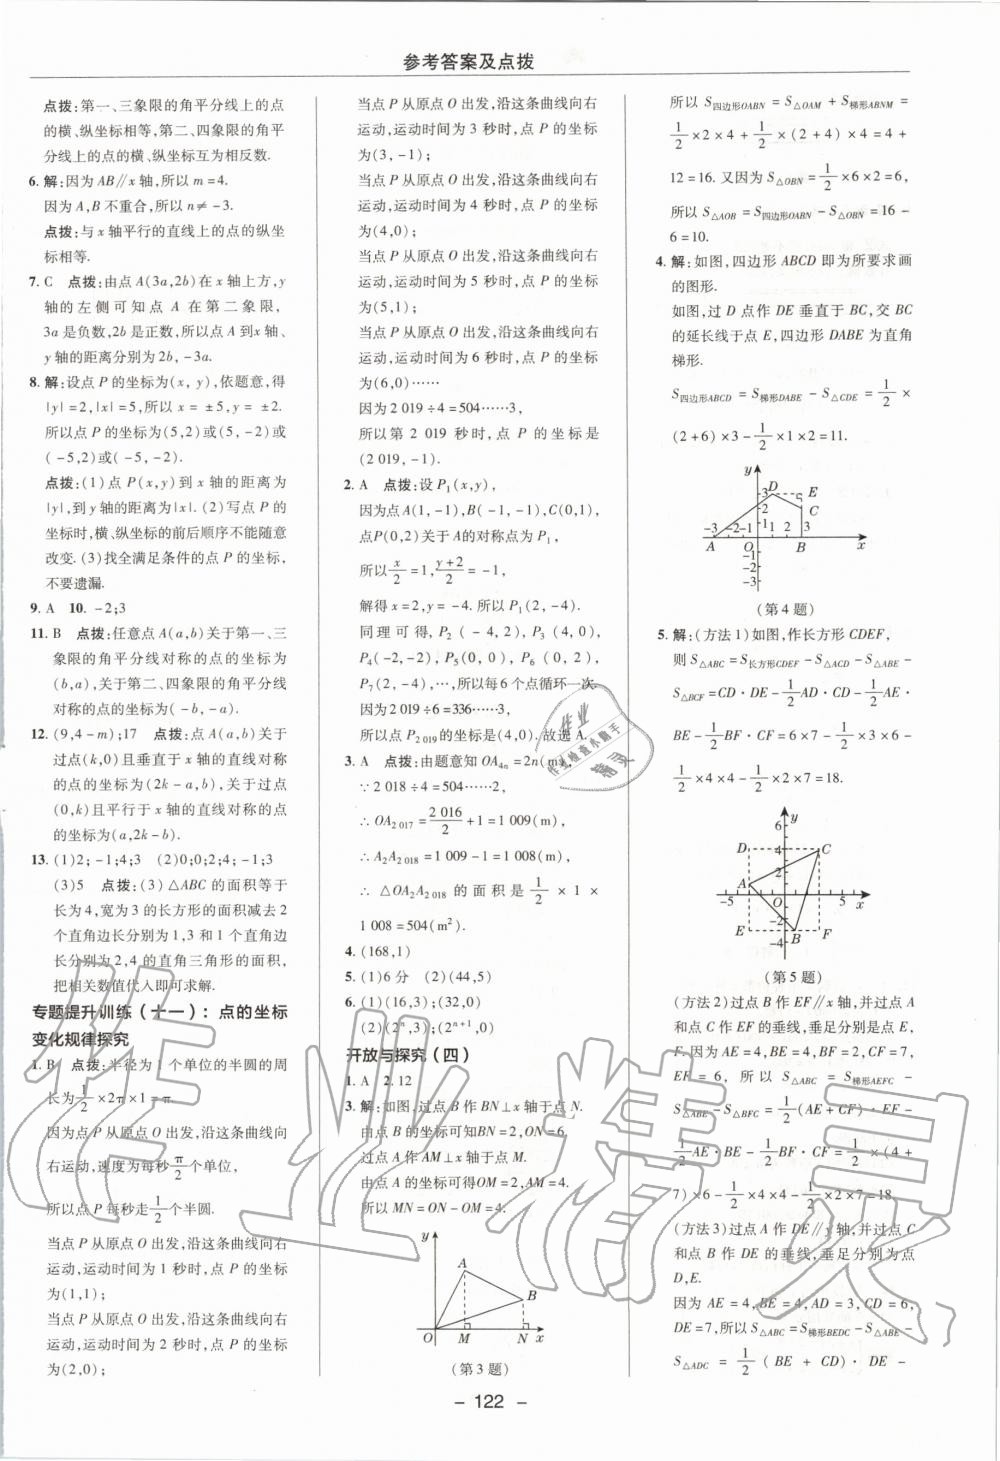 参考答案及点拨
点拨:第一、三象限的角平分线上的点
的横、纵坐标相等,第二、四象限的角平
分线上的点的横、纵坐标互为相反数.
6. 解:因为 AB∥x 轴,所以 m=4.
因为 A,B 不重合,所以 n≠-3.
点拨:与 x 轴平行的直线上的点的纵坐
标相等.
7. C 点拨:由点 A(3a,2b)在 x 轴上方,y
轴的左侧可知点 A 在第二象限,
3a 是负数,2b 是正数,所以点 A 到 x 轴、
y 轴的距离分别为 2b,-3a.
8. 解:设点 P 的坐标为(x, y),依题意,得
|y|=2,|x|=5,所以 x= ±5,y= ±2.
所以点 P 的坐标为(5,2)或(5,-2)或
(-5,2)或(-5,-2).
点拨:(1)点 P(x,y)到 x 轴的距离为
|y|,到 y 轴的距离为|x|.(2)写点 P 的
坐标时,横、纵坐标的前后顺序不能随意
改变.(3)找全满足条件的点 P 的坐标,
不要遗漏.
9. A 10. -2;3
11. B 点拨:任意点 A(a,b)关于第一、三
象限的角平分线对称的点的坐标为
(b,a),关于第二、四象限的角平分线
对称的点的坐标为(-b,-a).
12. (9,4-m);17 点拨:点 A(a,b)关于
过点(k,0)且垂直于 x 轴的直线对称
的点的坐标为(2k-a,b),关于过点
(0,k)且平行于 x 轴的直线对称的点
的坐标为(a,2k-b).
13. (1)2;-1;4;3 (2)0;0;2;4;-1;3
(3)5 点拨:(3)△ABC 的面积等于
长为 4,宽为 3 的长方形的面积减去 2
个直角边长分别为 1,3 和 1 个直角边
长分别为 2,4 的直角三角形的面积,
把相关数值代入即可求解.
专题提升训练(十一):点的坐标
变化规律探究
1. B 点拨:半径为 1 个单位的半圆的周
长为 1/2 ×2π×1=π.
因为点 P 从原点 O 出发,沿这条曲线向
右运动,速度为每秒 π/2 个单位,
所以点 P 每秒走 1/2 个半圆.
当点 P 从原点 O 出发,沿这条曲线向右
运动,运动时间为 1 秒时,点 P 的坐标
为(1,1);
当点 P 从原点 O 出发,沿这条曲线向右
运动,运动时间为 2 秒时,点 P 的坐标
为(2,0);
当点 P 从原点 O 出发,沿这条曲线向右
运动,运动时间为 3 秒时,点 P 的坐标
为(3,-1);
当点 P 从原点 O 出发,沿这条曲线向右
运动,运动时间为 4 秒时,点 P 的坐标
为(4,0);
当点 P 从原点 O 出发,沿这条曲线向右
运动,运动时间为 5 秒时,点 P 的坐标
为(5,1);
当点 P 从原点 O 出发,沿这条曲线向右
运动,运动时间为 6 秒时,点 P 的坐标
为(6,0)……
因为 2 019÷4=504……3,
所以第 2 019 秒时,点 P 的坐标是
(2 019,-1).
2. A 点拨:设 P₁(x,y),
因为点 A(1,-1),B(-1,-1),C(0,1),
点 P(0,2)关于 A 的对称点为 P₁,
所以 x/2 =1, (y+2)/2 = -1,
解得 x=2,y= -4. 所以 P₁(2,-4).
同理可得, P₂(-4,2), P₃(4,0),
P₄(-2,-2), P₅(0,0), P₆(0,2),
P₇(2,-4),…,所以每 6 个点循环一次.
因为 2 019÷6=336……3,
所以点 P₂ ₀₁₉ 的坐标是(4,0). 故选 A.
3. A 点拨:由题意知 OA₄ₙ=2n(m),
∵2 018÷4=504……2,
∴OA₂ ₀₁₇= 2 016/2 +1=1 009(m),
∴A₂A₂ ₀₁₈=1 009-1=1 008(m),
∴△OA₂A₂ ₀₁₈ 的面积是 1/2 ×1×
1 008=504(m²).
4. (168,1)
5. (1)6 分 (2)(44,5)
6. (1)(16,3);(32,0)
(2)(2ⁿ,3);(2ⁿ⁺¹,0)
开放与探究(四)
1. A 2. 12
3. 解:如图,过点 B 作 BN⊥x 轴于点 N.
由点 B 的坐标可知 BN=2,ON=6.
过点 A 作 AM⊥x 轴于点 M.
由点 A 的坐标可得 OM=2,AM=4.
所以 MN=ON-OM=4.
y
A
B
O M N x
(第 3 题)
所以 S四边形OABN=S△OAM+S梯形ABNM=
1/2 ×2×4+ 1/2 ×(2+4)×4=4+
12=16. 又因为 S△OBN= 1/2 ×6×2=6,
所以 S△AOB=S四边形OABN-S△OBN=16-
6=10.
4. 解:如图,四边形 ABCD 即为所要求画
的图形.
如图,过 D 点作 DE 垂直于 BC,交 BC
的延长线于点 E,四边形 DABE 为直角
梯形.
S四边形ABCD=S梯形DABE-S△CDE= 1/2 ×
(2+6)×3- 1/2 ×1×2=11.
y
3 D E
2 C
-3 -2-1 1 1 2 3
A O B x
-1
-2
-3
(第 4 题)
5. 解:(方法 1)如图,作长方形 CDEF,
则 S△ABC=S长方形CDEF-S△ACD-S△ABE-
S△BCF=CD·DE- 1/2 AD·CD- 1/2 AE·
BE- 1/2 BF·CF=6×7- 1/2 ×3×6-
1/2 ×4×4- 1/2 ×2×7=18.
y
6
D 4 C
2
A
-5 O 5 x
-2
E B F
-4
(第 5 题)
(方法 2)过点 B 作 EF∥x 轴,并过点 A
和点 C 作 EF 的垂线,垂足分别是点 E,
F. 因为 AE=4,BE=4,BF=2,CF=7,
EF=6, 所以 S△ABC=S梯形AEFC-
S△ABE-S△BFC= 1/2 (AE+CF)·EF-
1/2 AE·BE- 1/2 BF·CF= 1/2 ×(4+
7)×6- 1/2 ×4×4- 1/2 ×2×7=18.
(方法 3)过点 A 作 DE∥y 轴,并过点 C
和点 B 作 DE 的垂线,垂足分别为点
D,E.
因为 AE=4,BE=4,AD=3,CD=6,
DE=7,所以 S△ABC=S梯形BEDC-S△ABE-
S△ADC= 1/2 (BE+CD)·DE-
- 122 -
作业
作业检查小助手
精灵
作业精灵